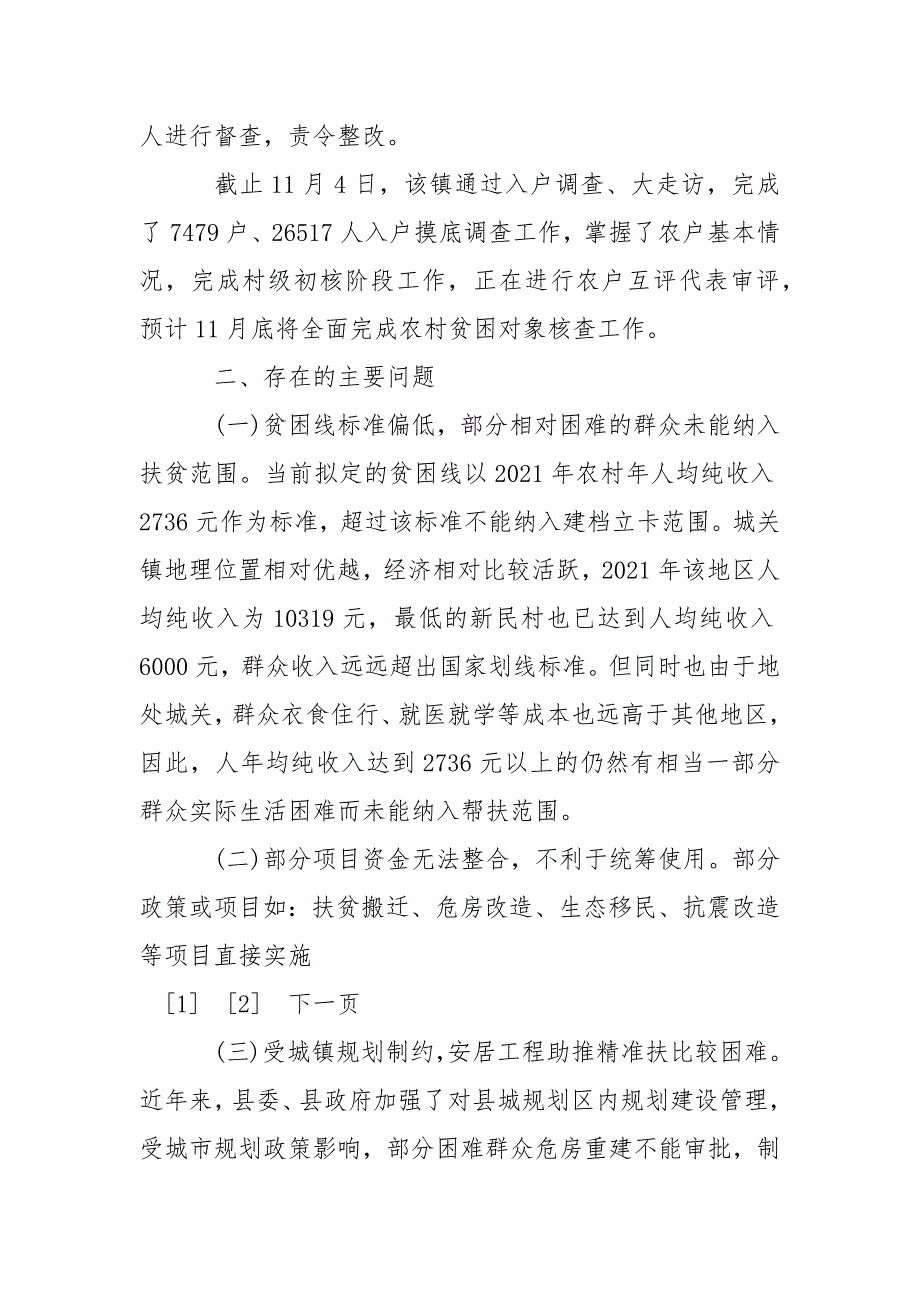 人进行督查，责令整改。
截止11月4日，该镇通过入户调查、大走访，完成
了7479户、26517人入户摸底调查工作，掌握了农户基本情
况，完成村级初核阶段工作，正在进行农户互评代表审评，
预计11月底将全面完成农村贫困对象核查工作。
二、存在的主要问题
(一)贫困线标准偏低，部分相对困难的群众未能纳入
扶贫范围。当前拟定的贫困线以2021年农村年人均纯收入
2736元作为标准，超过该标准不能纳入建档立卡范围。城关
镇地理位置相对优越，经济相对比较活跃，2021年该地区人
均纯收入为10319元，最低的新民村也已达到人均纯收入
6000元，群众收入远远超出国家划线标准。但同时也由于地
处城关，群众衣食住行、就医就学等成本也远高于其他地区，
因此，人年均纯收入达到2736元以上的仍然有相当一部分
群众实际生活困难而未能纳入帮扶范围。
(二)部分项目资金无法整合，不利于统筹使用。部分
政策或项目如：扶贫搬迁、危房改造、生态移民、抗震改造
等项目直接实施
[1] [2] 下一页
(三)受城镇规划制约，安居工程助推精准扶比较困难。
近年来，县委、县政府加强了对县城规划区内规划建设管理，
受城市规划政策影响，部分困难群众危房重建不能审批，制